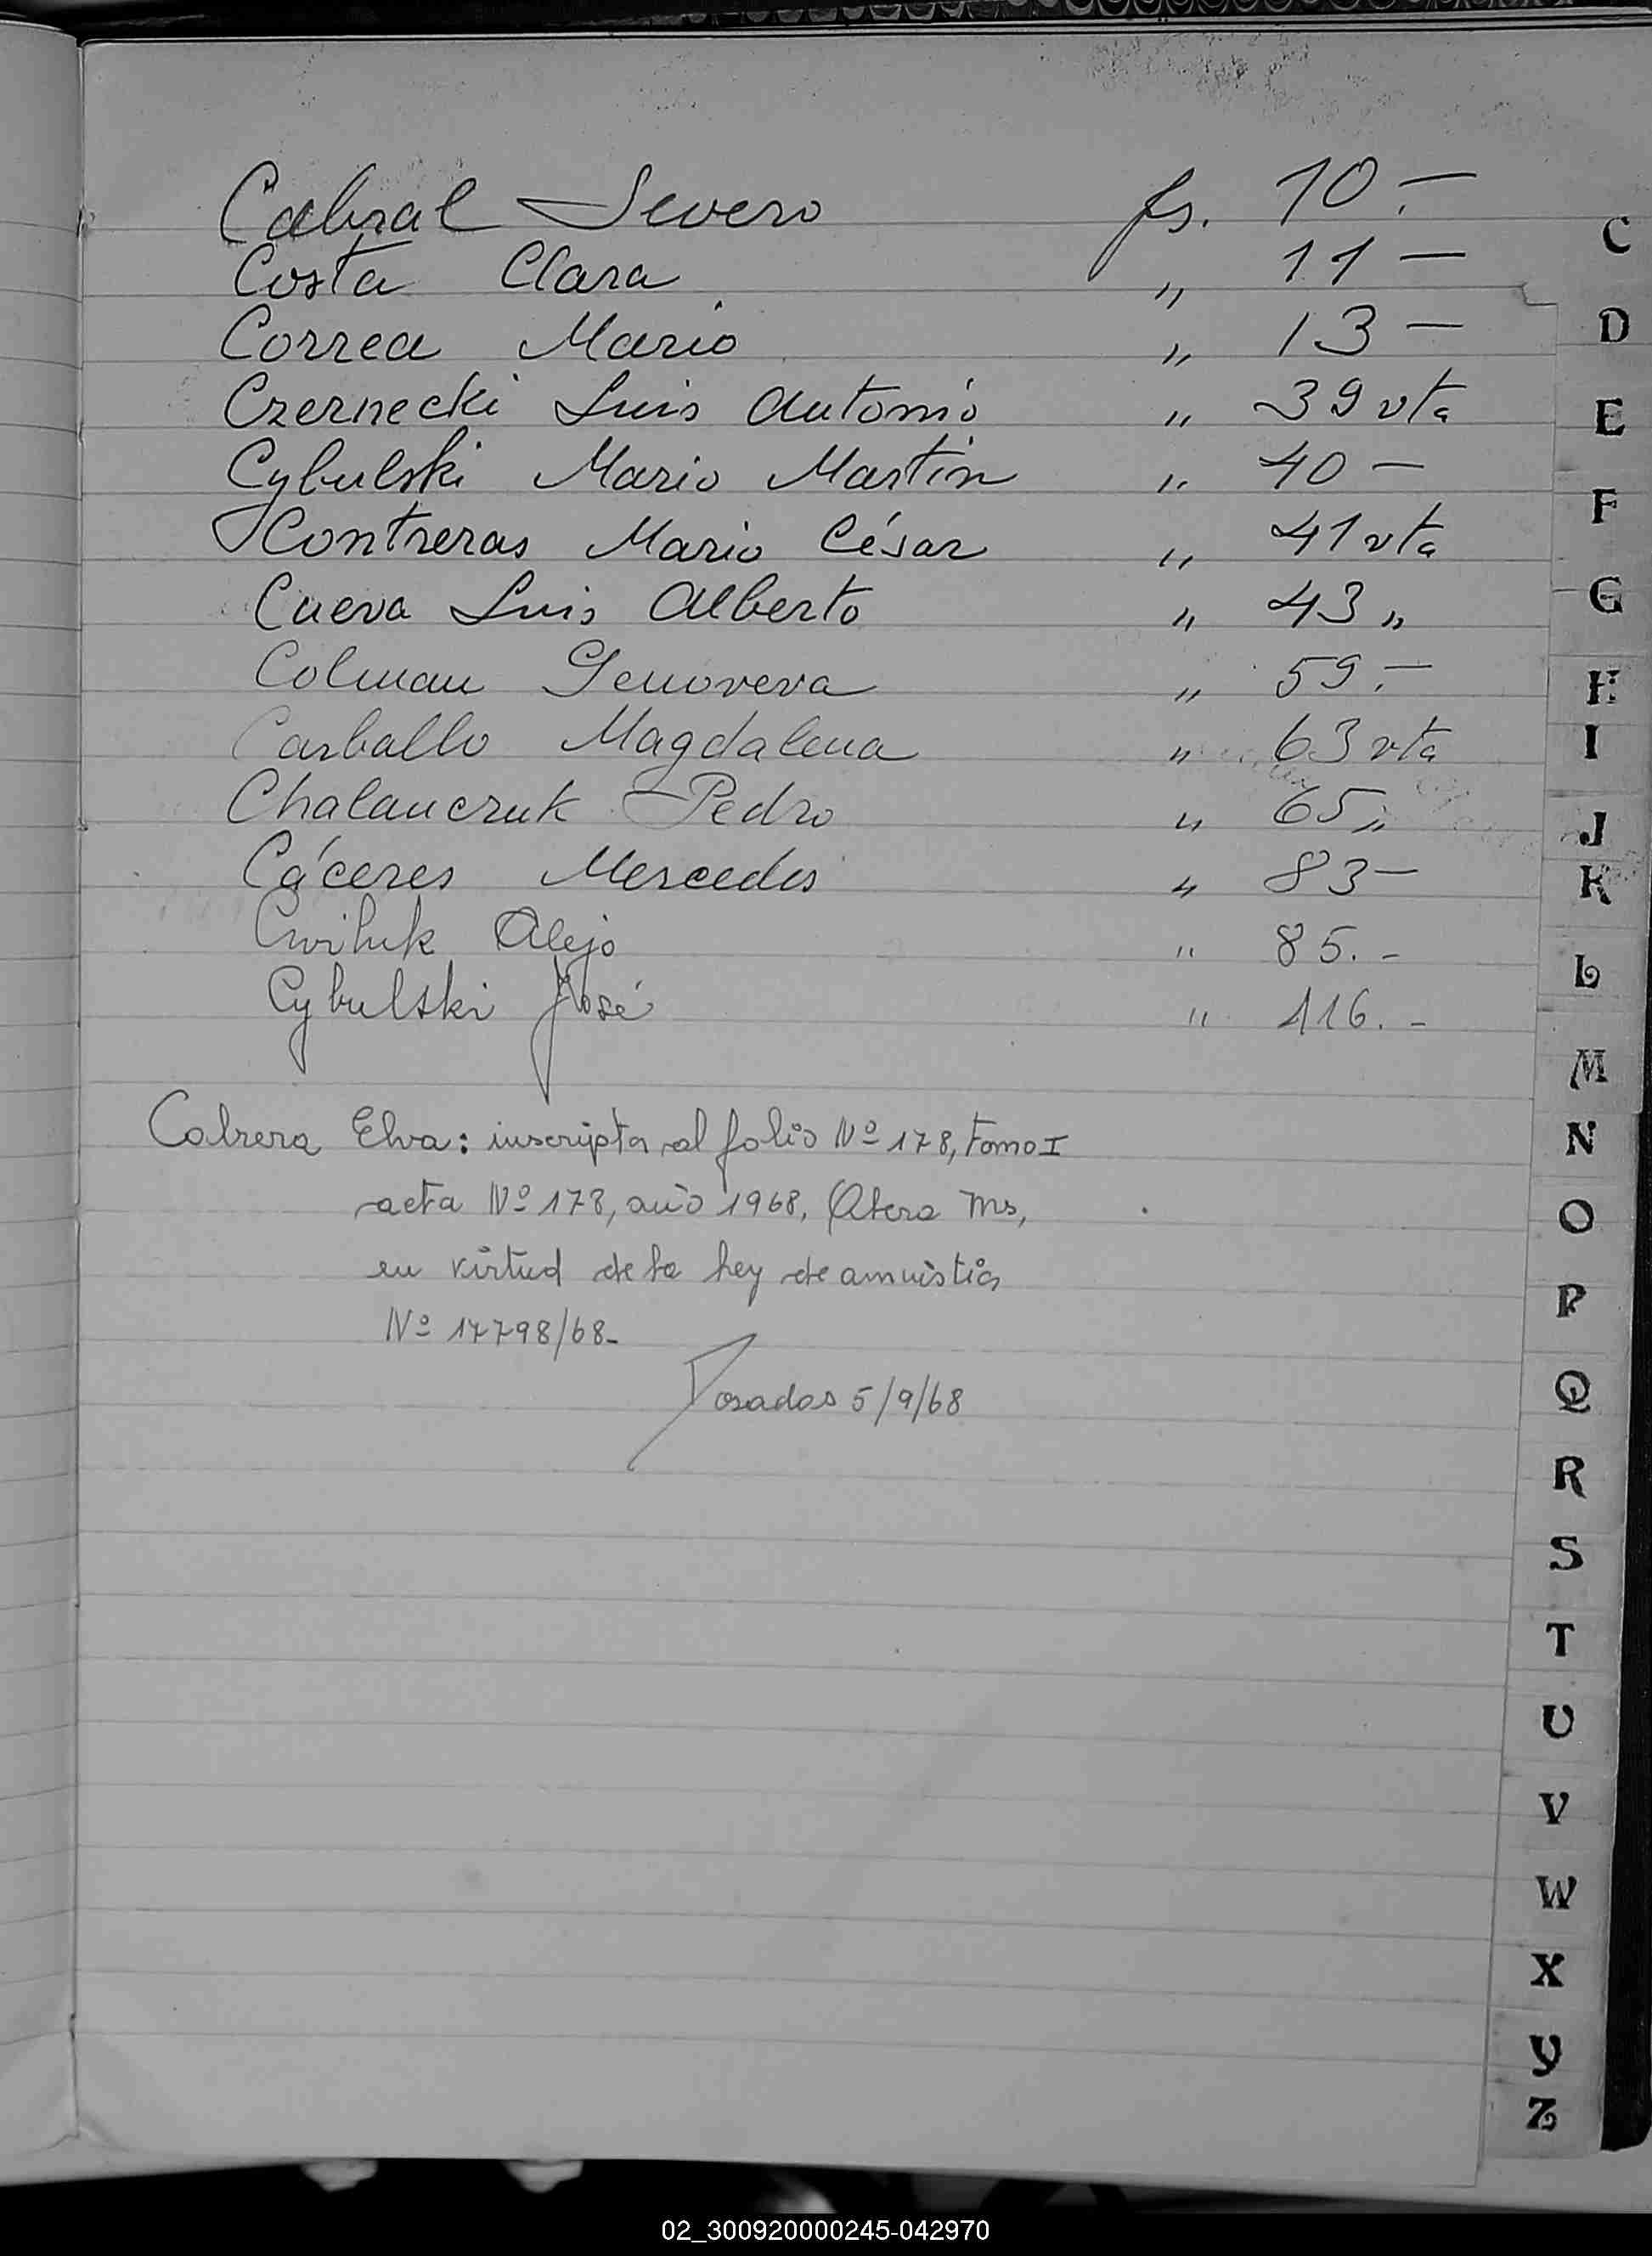 Cabral Severo fs. 10.—
Costa Clara „ 11 —
Correa Mario „ 13 —
Czernecki Luis Antonio „ 39 vta
Cybulski Mario Martin „ 40 —
Contreras Mario César „ 41 vta
Cueva Luis Alberto „ 43 „
Colman Genoveva „ 59.—
Carballo Magdalena „ 63 vta
Chalanczuk Pedro „ 65 „
Cáceres Mercedes „ 83 —
Alejo " 85.-
Cybulski José " 116.-
Cabrera Elva: inscripta al folio Nº 178, Tomo I
acta Nº 178, año 1968, Obera Ms,
en virtud de la ley de amnistia
Nº 17798/68-
Posadas 5/9/68
C
D
E
F
G
H
I
J
K
L
M
N
O
P
Q
R
S
T
U
V
W
X
Y
Z
02_300920000245-042970